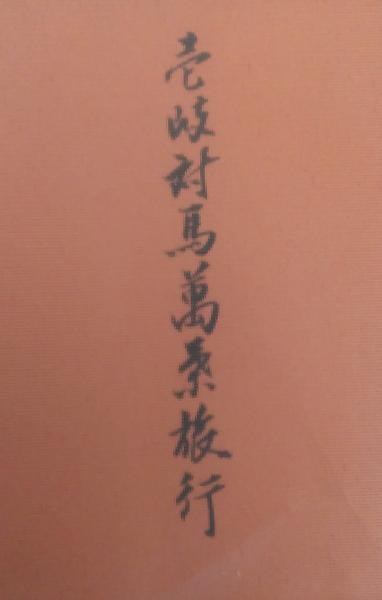 壱岐対馬萬葉旅行